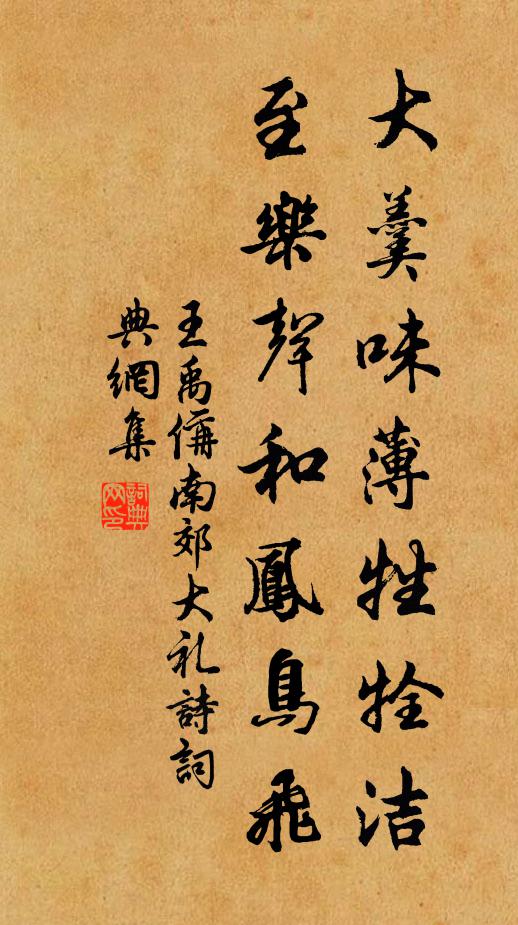 大羹味薄牲牷洁
至樂聲和鳳鳥飛
王禹偁南郊大礼詩詞
典網集
詞典
网印